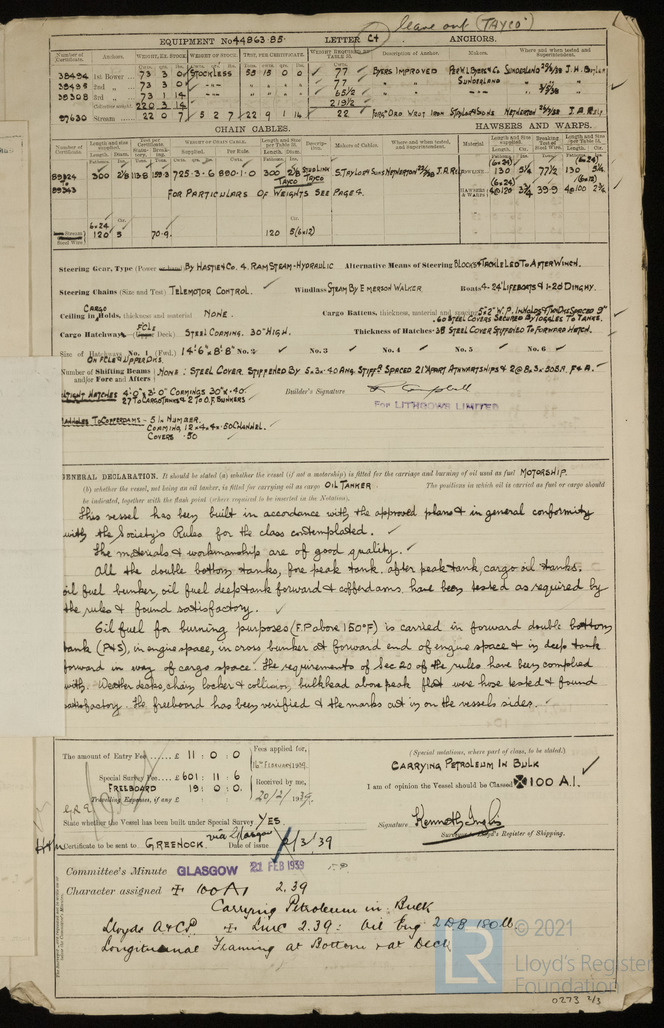 leave out (TAYCO)
EQUIPMENT No 44863.85. LETTER C† ANCHORS.
Number of Certificate. Anchors. WEIGHT, EX. STOCK. WEIGHT OF STOCK. TEST, PER CERTIFICATE. WEIGHT REQUIRED BY TABLE 31. Description of Anchor. Makers. Where and when tested and Superintendent.
38494 1st Bower 73 3 0 STOCKLESS 55 15 0 0 77 BYERS IMPROVED SUNDERLAND
38498 2nd „ 73 3 0 77 SUNDERLAND
38308 3rd „ 73 1 14 65½
Collective weight 220 3 14 219½
97630 Stream 22 0 7 5 2 7 22 9 1 14 22 NETHERTON
CHAIN CABLES. HAWSERS AND WARPS.
Number of Certificate. Length and size supplied. Test per Certificate. WEIGHT OF CHAIN CABLE. Length and size per Table 31. Description. Makers of Cables. Where and when tested, and Superintendent. Material Length and Size supplied. Breaking Test of Steel Wire. Length and Size per Table 31.
89324 TO 89343 300 2⅛ 113.8 159.3 725.3.6 680.1.0 300 2⅛ STUD LINK TAYCO S. TAYLOR & SONS NETHERTON 130 5¼ 77½ 130 5¼
FOR PARTICULARS OF WEIGHTS SEE PAGE 4. HAWSERS & WARPS 4@120 3¾ 39.9 4@100 2¾
6 x 24
120 5 70.9. 120 5 (6x12)
Steering Gear, Type (Power) BY HASTIE & CO. 4 RAM STEAM-HYDRAULIC Alternative Means of Steering BLOCKS & TACKLE LED TO AFTER WINCH.
Steering Chains (Size and Test) TELEMOTOR CONTROL. Windlass STEAM BY EMERSON WALKER Boats 4-24' LIFEBOATS & 1-20 DINGHY.
Ceiling in CARGO Holds, thickness and material NONE. Cargo Battens, thickness, material and spacing 5x2" W.P. IN HOLDS & TWN DKS SPACED 9"
.60 STEEL COVERS SECURED BY TOGGLES TO TANKS.
Cargo Hatchways FCLE (Upper Deck) STEEL COAMING. 30" HIGH. Thickness of Hatches .38 STEEL COVER STIFFENED TO FORWARD HATCH.
Size of Hatchways No. 1 (Fwd.) 14'6" x 8'8" No. 2 No. 3 No. 4 No. 5 No. 6
ON FCLE & UPPER DKS.
Number of Shifting Beams and/or Fore and Afters NONE: STEEL COVER STIFFENED BY 5 x 3 x .40 ANG. STIFFRS SPACED 21" APART ATHWARTSHIPS & 2@8x3x.50 B.A. F & A.
TIGHT HATCHES 4'0" x 3'0" COAMINGS 30" x .40 Builder's Signature
27 TO CARGO TANKS & 2 TO O.F. BUNKERS For LITHGOWS LIMITED
MANHOLES TO COFFERDAMS - 5 IN NUMBER.
COAMING, 12 x 4 x 4 x .50 CHANNEL.
COVERS .50
GENERAL DECLARATION. It should be stated (a) whether the vessel (if not a motorship) is fitted for the carriage and burning of oil used as fuel MOTORSHIP.
(b) whether the vessel, not being an oil tanker, is fitted for carrying oil as cargo OIL TANKER The positions in which oil is carried as fuel or cargo should
be indicated, together with the flash point (where required to be inserted in the Notation).
This vessel has been built in accordance with the approved plans & in general conformity
with the Society's Rules for the class contemplated.
The materials & workmanship are of good quality.
All the double bottom tanks, fore peak tank, after peak tank, cargo oil tanks.
oil fuel bunker, oil fuel deep tank forward & cofferdams, have been tested as required by
the rules & found satisfactory.
Oil fuel for burning purposes (F.P. above 150°F) is carried in forward double bottom
tank (P&S), in engine space, in cross bunker at forward end of engine space & in deep tank
forward in way of cargo space. The requirements of Sec 20 of the rules have been complied
with. Weather decks, chain locker & collision, bulkhead above peak flat were hose tested & found
satisfactory. The freeboard has been verified & the marks cut in on the vessels sides.
The amount of Entry Fee £ 11 : 0 : 0 Fees applied for, (Special notations, where part of class, to be stated.)
16th FEBRUARY 1939. CARRYING PETROLEUM IN BULK
Special Survey Fee £ 601 : 11 : 6 Received by me, I am of opinion the Vessel should be Classed ✠ 100 A1.
FREEBOARD 19 : 0 : 0. 20/2/1939.
Travelling Expenses, if any £
State whether the Vessel has been built under Special Survey YES. Signature Kenneth Inglis
Surveyor to Lloyd's Register of Shipping.
Certificate to be sent to GREENOCK. via Glasgow Date of issue 2/3/39
Committee's Minute GLASGOW 21 FEB 1939
Character assigned ✠ 100 A1 2.39
Carrying Petroleum in Bulk
Lloyds A & CP. ✠ LMC 2.39: Oil Eng 2DB 180 lb
Longitudinal Framing at Bottom & at Deck
© 2021
LR
Lloyd's Register
Foundation
0273 2/3